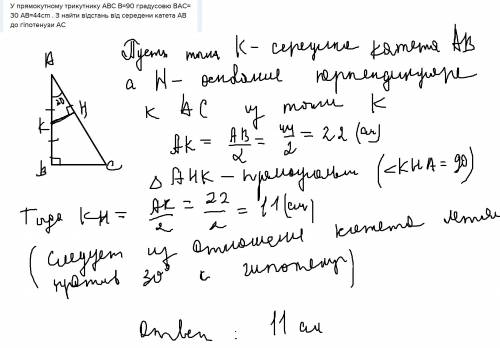 У прямокутному трикутнику ABC B=90 градусовю BAC=
30 AB=44cm . З найти відстань від середени катета AB
до гіпотенузи AC
A
30
K
H
B
C
Пусть точка K - середина катета AB
а H - основание перпендикуляра
к AC из точки K
AK = AB/2 = 44/2 = 22 (см)
△ AHK - прямоугольн (<KHA = 90)
Тогда KH = AK/2 = 22/2 = 11 (см)
(следует из отношения катета
против 30° к гипотенузе)
Ответ : 11 см